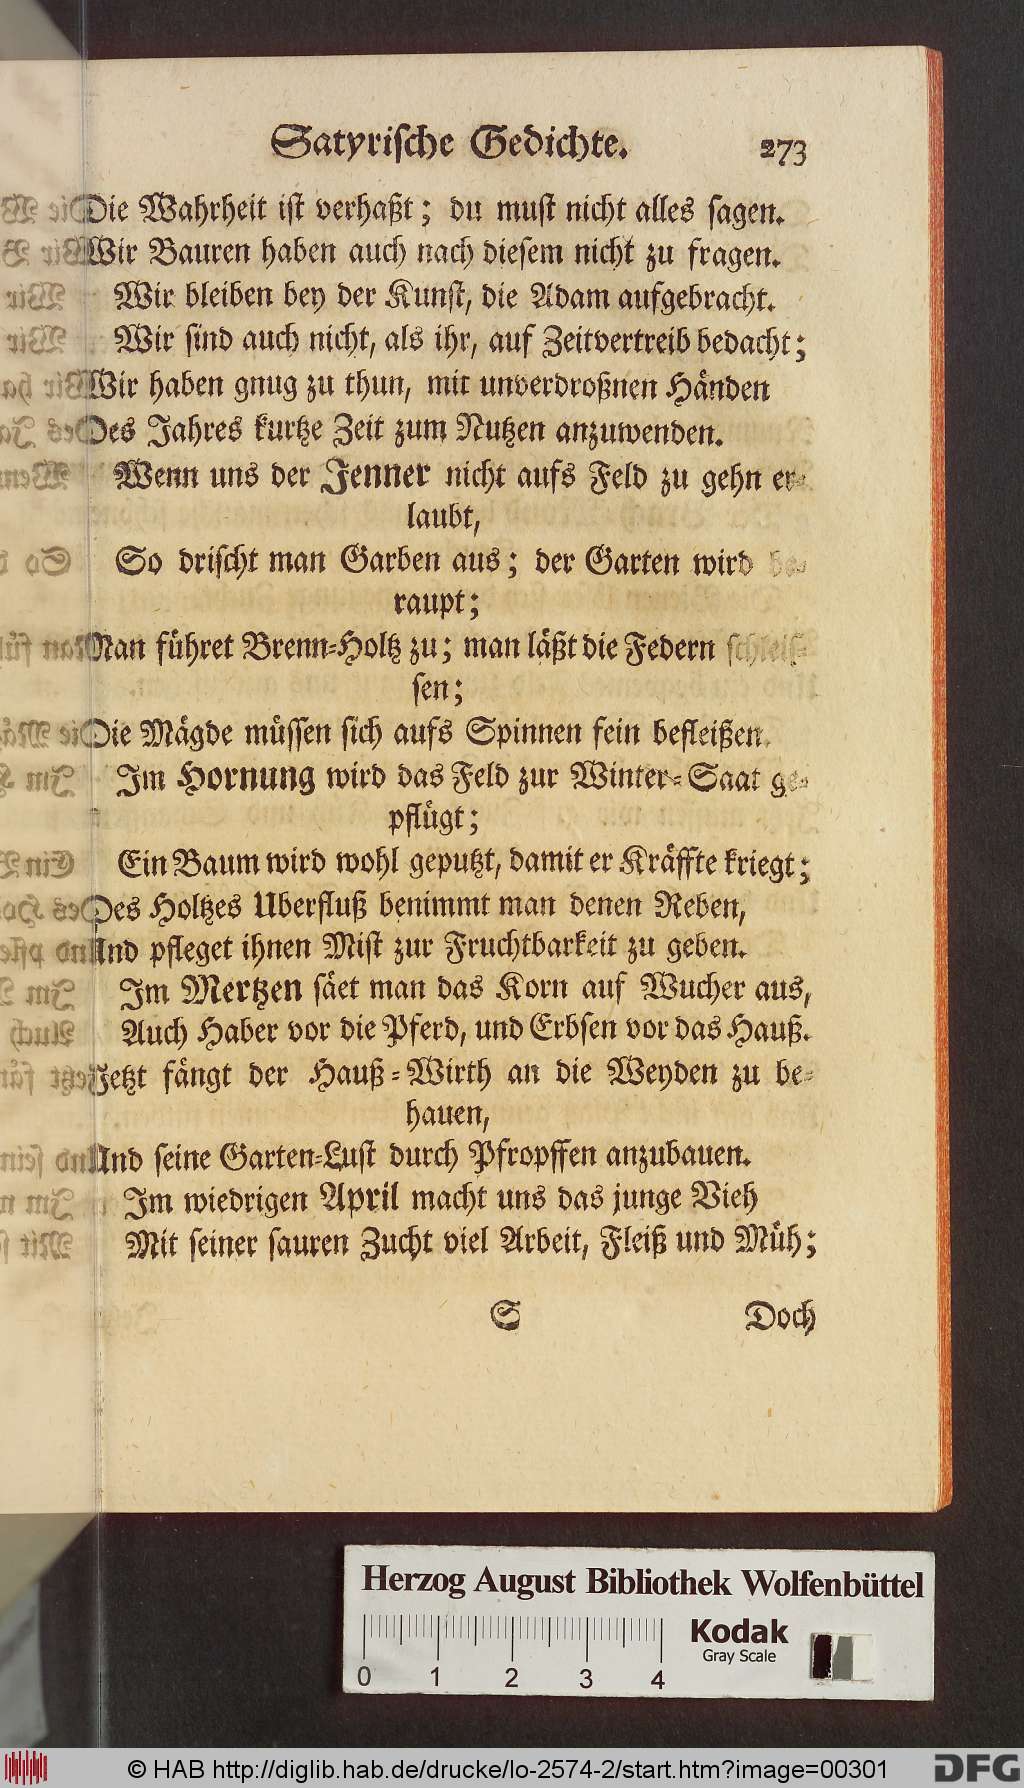 Satyrische Gedichte. 273
Die Wahrheit ist verhaßt; du must nicht alles sagen.
Wir Bauren haben auch nach diesem nicht zu fragen.
Wir bleiben bey der Kunst, die Adam aufgebracht.
Wir sind auch nicht, als ihr, auf Zeitvertreib bedacht;
Wir haben gnug zu thun, mit unverdroßnen Händen
Des Jahres kurtze Zeit zum Nutzen anzuwenden.
Wenn uns der Jenner nicht aufs Feld zu gehn er-
laubt,
So drischt man Garben aus; der Garten wird be-
raupt;
Man führet Brenn-Holtz zu; man läßt die Federn schleis-
sen;
Die Mägde müssen sich aufs Spinnen fein befleißen.
Im Hornung wird das Feld zur Winter-Saat ge-
pflügt;
Ein Baum wird wohl geputzt, damit er Kräffte kriegt;
Des Holtzes Uberfluß benimmt man denen Reben,
Und pfleget ihnen Mist zur Fruchtbarkeit zu geben.
Im Mertzen säet man das Korn auf Wucher aus,
Auch Haber vor die Pferd, und Erbsen vor das Hauß.
Jetzt fängt der Hauß-Wirth an die Weyden zu be-
hauen,
Und seine Garten-Lust durch Pfropffen anzubauen.
Im wiedrigen April macht uns das junge Vieh
Mit seiner sauren Zucht viel Arbeit, Fleiß und Müh;
S Doch
Herzog August Bibliothek Wolfenbüttel
Kodak
Gray Scale
0 1 2 3 4
© HAB http://diglib.hab.de/drucke/lo-2574-2/start.htm?image=00301
DFG